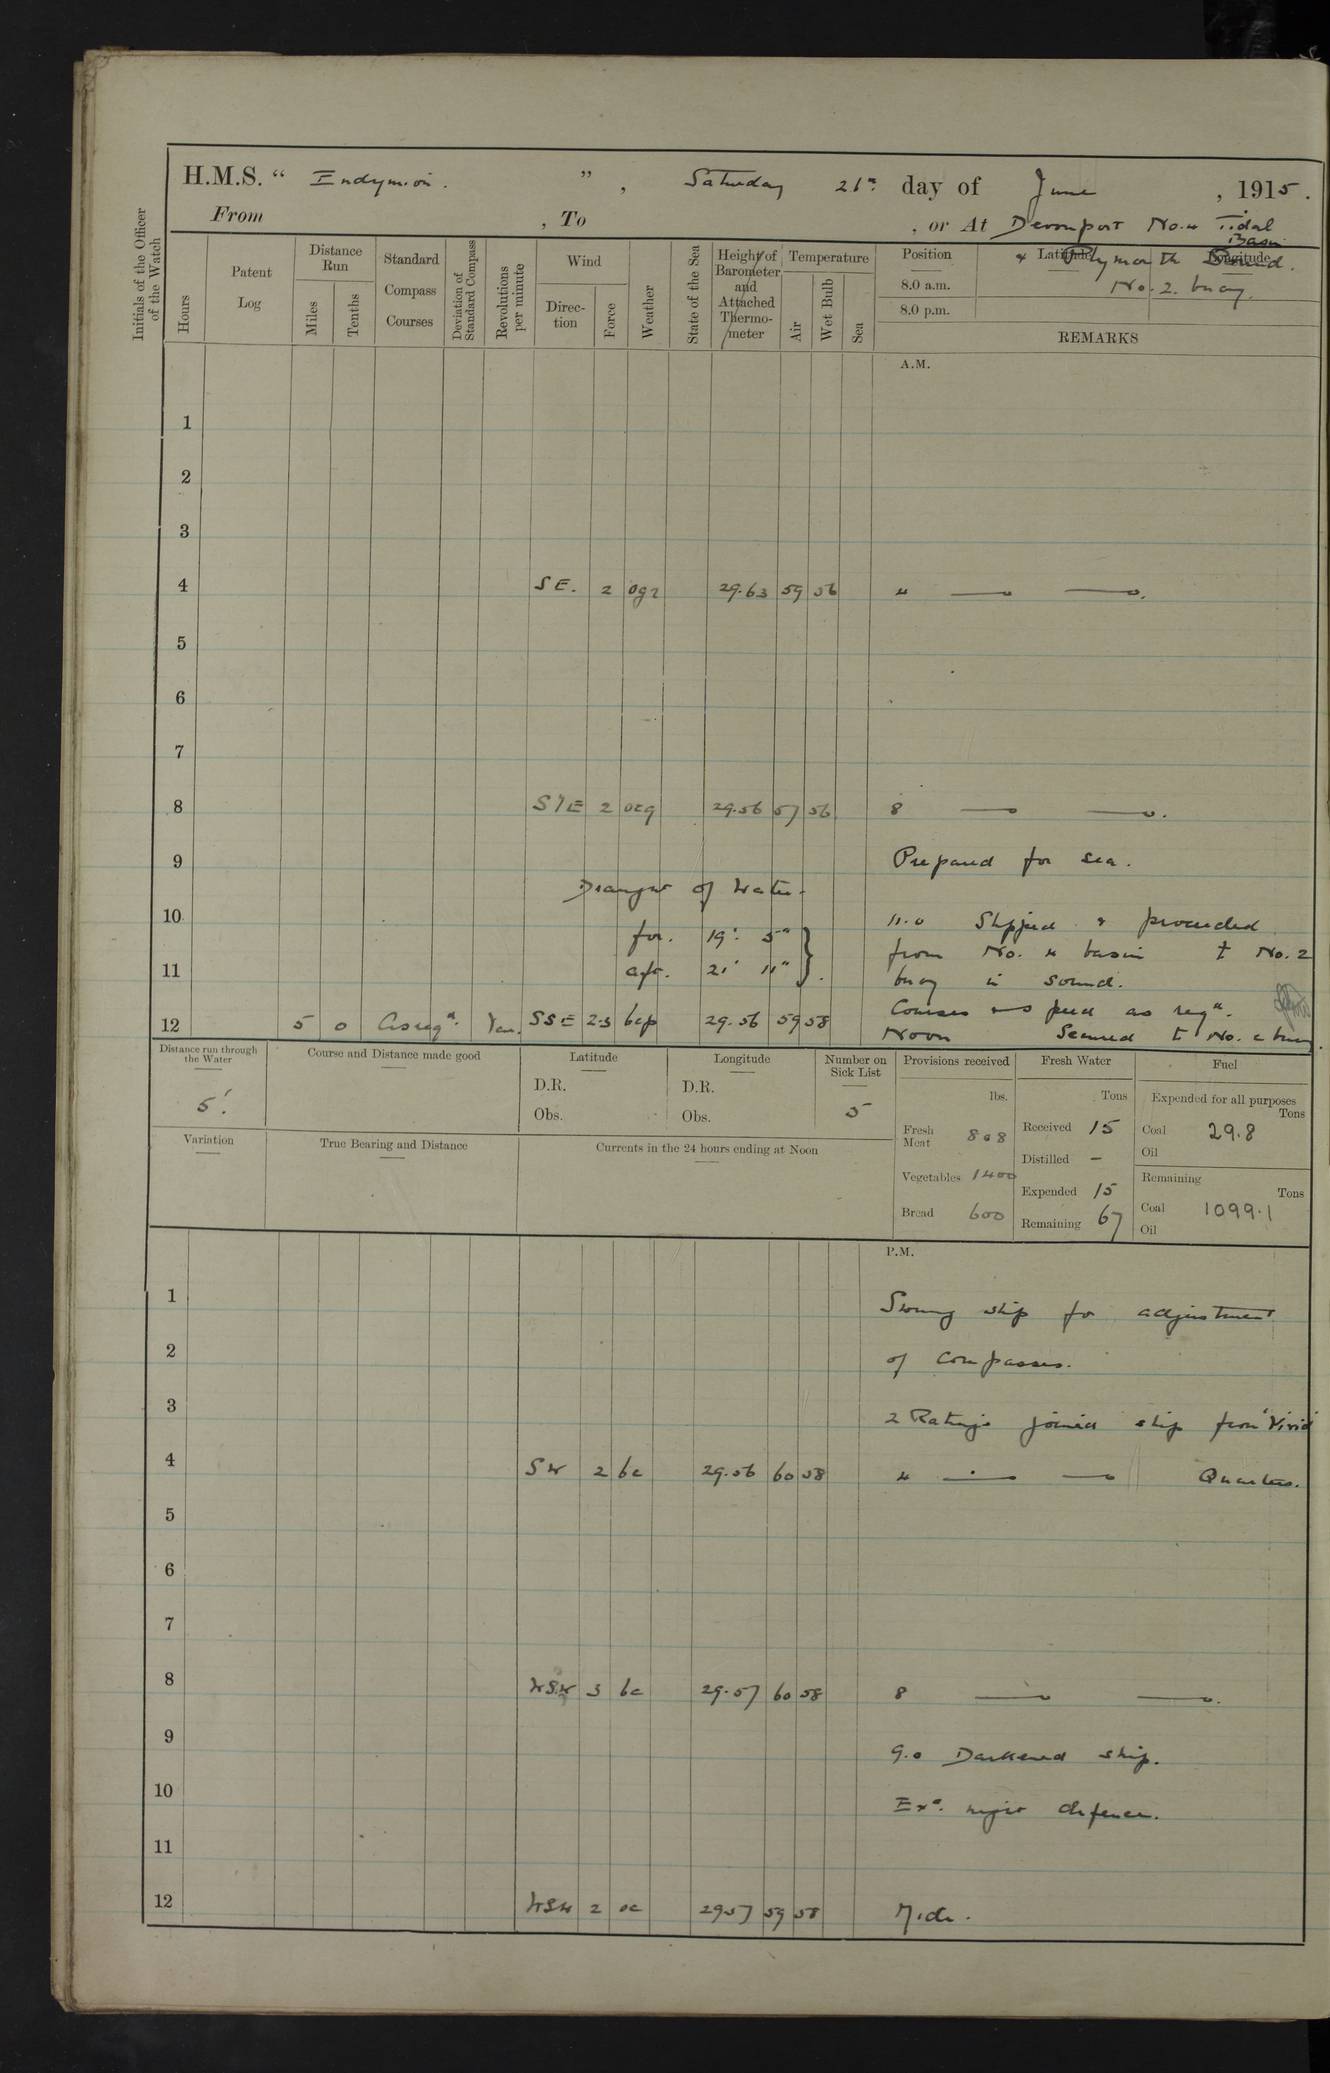 H.M.S. “ Endymion. ” , Saturday 26th day of June , 1915 .
From , To , or At Devonport No. 4 Tidal
Basin
& Plymouth Sound.
No. 2. buoy.
Initials of the Officer of the Watch
Hours
Patent Log
Distance Run
Miles
Tenths
Standard Compass Courses
Deviation of Standard Compass
Revolutions per minute
Wind
Direction
Force
Weather
State of the Sea
Height of Barometer and Attached Thermometer
Temperature
Air
Wet Bulb
Sea
Position
Latitude
Longitude
8.0 a.m.
8.0 p.m.
REMARKS
A.M.
1
2
3
4 SE. 2 ogr 29.63 59 56 4 — —.
5
6
7
8 S 29.56 57 56 8 — —.
9 Prepared for sea.
Draught of Water.
10 11.0 Slipped & proceeded
for. 19' 5" from No. 4 basin to No. 2
11 aft. 21' 11" buoy in sound.
Courses and speed as reqd.
12 5 0 As reqd. Var. SSE 2-3 bcp 29.56 59 58 Noon Secured to No. 2 buoy.
Distance run through the Water
5'.
Course and Distance made good
Latitude
D.R.
Obs.
Longitude
D.R.
Obs.
Number on Sick List
5
Provisions received
lbs.
Fresh Meat 808
Vegetables 1400
Bread 600
Fresh Water
Tons
Received 15
Distilled –
Expended 15
Remaining 67
Fuel
Expended for all purposes
Tons
Coal 29.8
Oil
Remaining
Tons
Coal 1099.1
Oil
Variation
True Bearing and Distance
Currents in the 24 hours ending at Noon
P.M.
1 Swung ship for adjustment
2 of compasses.
3 2 Ratings joined ship from 'Vivid'
4 SW 2 bc 29.56 60 58 4 — — Quarters.
5
6
7
8 WSW 3 bc 29.57 60 58 8 — —.
9 9.0 Darkened ship.
10 Exd. night defence.
11
12 WSW 2 oc 29.57 59 58 Midt.